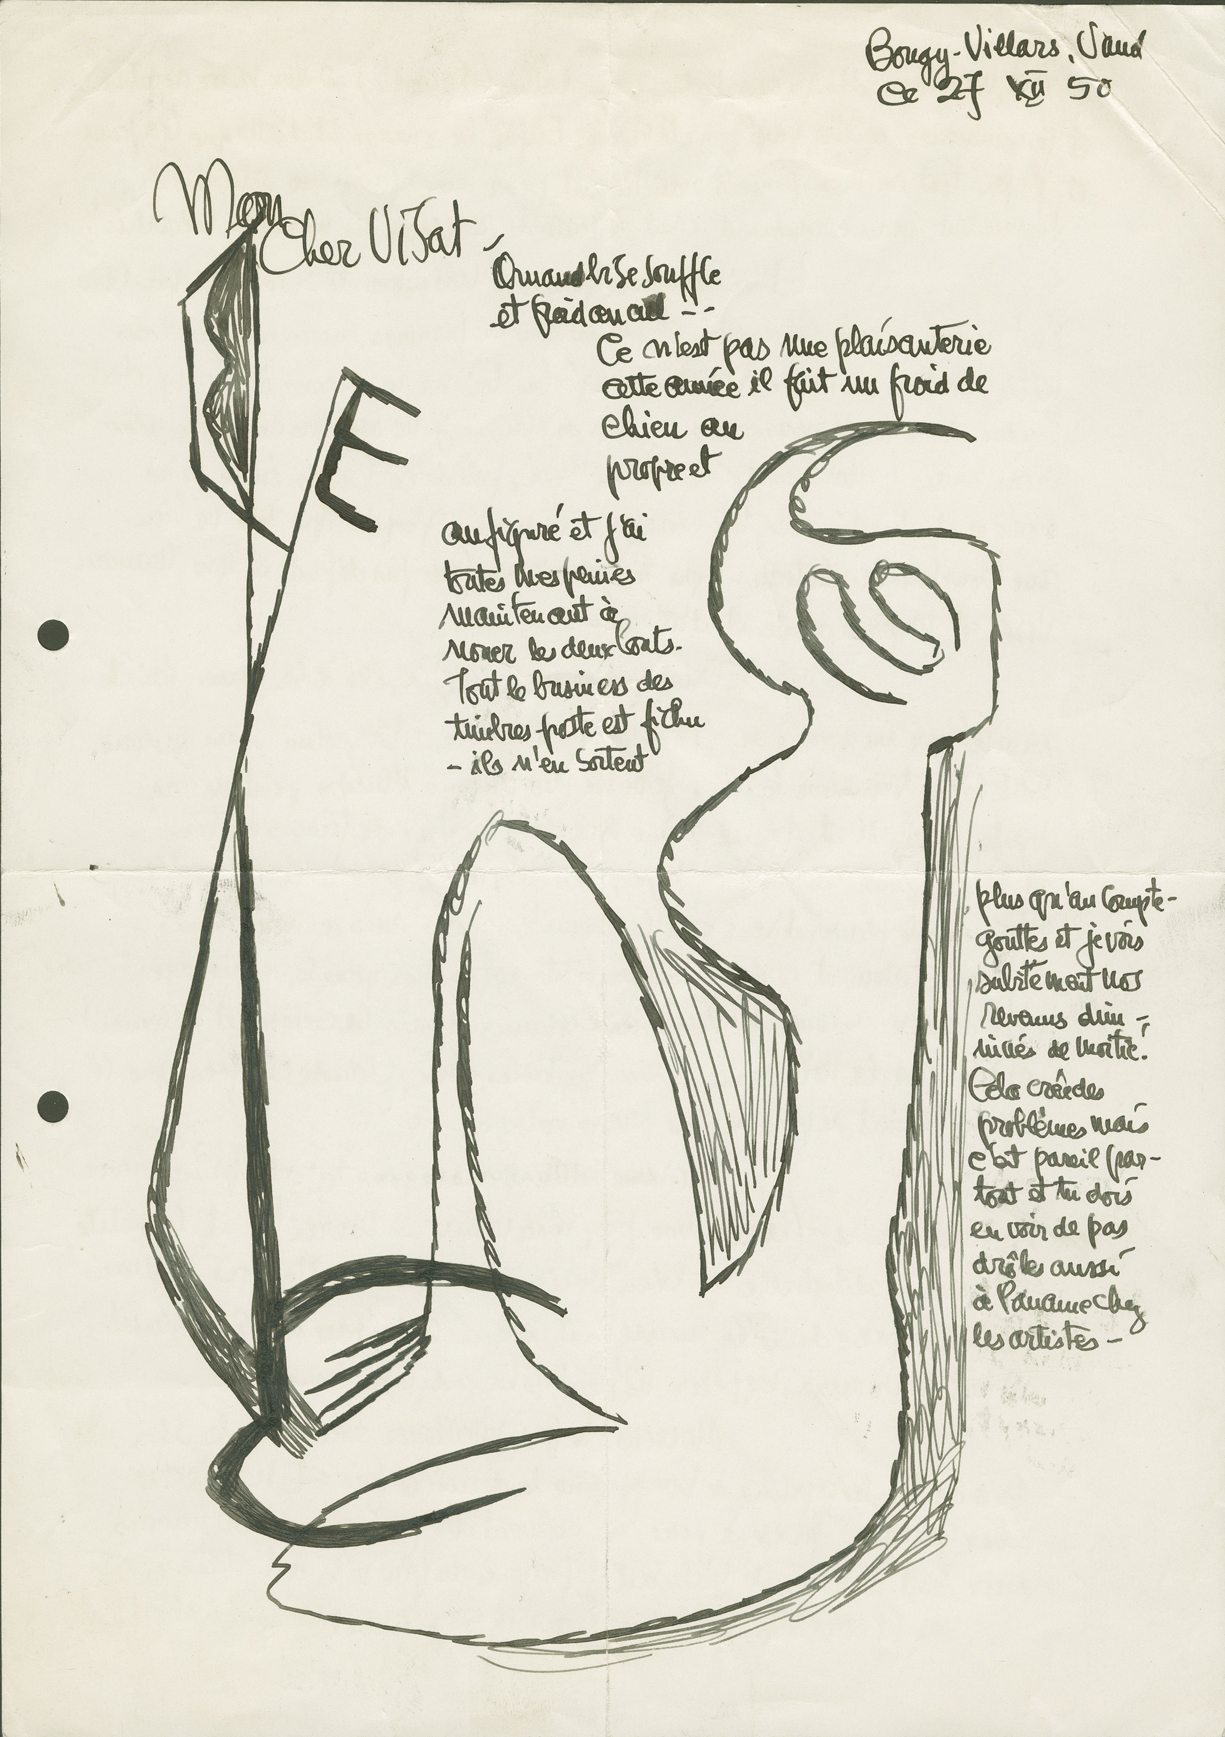 Bougy-Villars, Vaud
Ce 27 XII 50
Mon
Cher Visat -
Quand bise souffle
et froid au cul - - -
Ce n'est pas une plaisanterie
cette année il fait un froid de
chien au
propre et
au figuré et j'ai
toutes mes peines
maintenant à
nouer les deux bouts.
Tout le business des
timbres-poste est fichu
- ils n'en sortent
plus qu'au compte-
gouttes et je vois
subitement nos
revenus dimi-
nués de moitié!
Cela crée des
problèmes mais
c'est pareil par-
tout et tu dois
en voir de pas
drôles aussi
à Paname chez
les artistes -